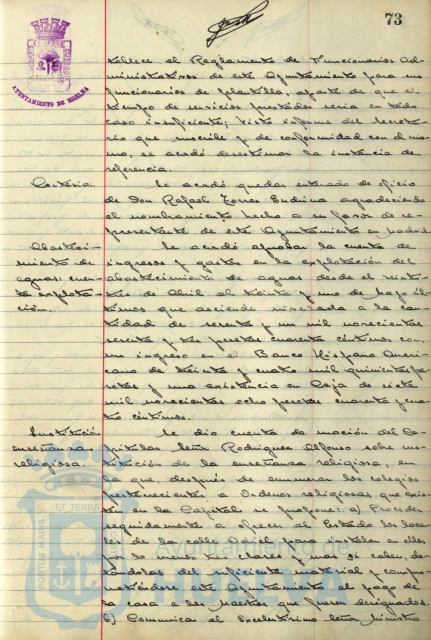 73
AYUNTAMIENTO DE HUELVA
tablece el Reglamento de Funcionarios Ad-
ministrativos de este Ayuntamiento para sus
funcionarios de plantilla, aparte de que el
tiempo de servicios prestados seria en todo
caso insuficiente; visto informe del Secreta-
rio que suscribe y de conformidad con el mis-
mo, se acordó desestimar la instancia de
referencia.
Cortesia. Se acordó quedar enterado de oficio
de Don Rafael Torres Endrina agradeciendo
el nombramiento hecho a su favor de re-
presentante de este Ayuntamiento en Madrid.
Abasteci- Se acordó aprobar la cuenta de
miento de ingresos y gastos en la explotación del
aguas; cuen- abastecimiento de aguas desde el veinte
ta explota- de Abril al treinta y uno de Mayo úl-
ción. timos que asciende nivelada a la can-
tidad de sesenta y un mil novecientas
sesenta y tres pesetas cuarenta céntimos con
un ingreso en el Banco Hispano Ameri-
cano de treinta y cuatro mil quinientas pe-
setas y una existencia en Caja de siete
mil novecientas ocho pesetas cuarenta y cua-
tro céntimos.
Sustitución Se dio cuenta de moción del Ca-
enseñanza pitular Señor Rodriguez Alfonso sobre sus-
religiosa. titución de la enseñanza religiosa, en
la que, después de enumerar los colegios
pertenecientes a Ordenes religiosas que exis-
ten en la Capital se propone: a) Proceder
seguidamente a ofrecer al Estado los loca-
les de la calle para instalar en ellos
por lo menos tres clases y mas si caben, do-
tándolas del suficiente material y compro-
metiéndose este Ayuntamiento al pago de
la casa a los Maestros que fuesen designados.
b) Comunicar al Excelentisimo Señor Ministro
PORTUS MARIS ET TERRAE
Ayuntamiento de
HUELVA